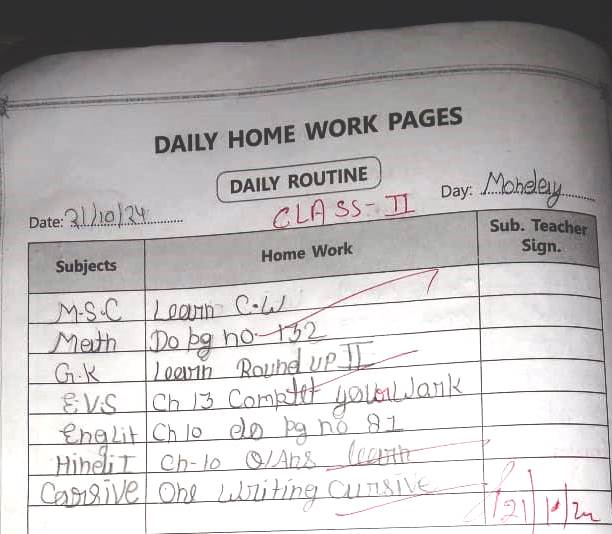 DAILY HOME WORK PAGES
DAILY ROUTINE
Date: 21/10/24 Day: Monday
CLASS-II
Subjects Home Work Sub. Teacher Sign.
M.S.C Learn C.W
Math Do pg no 132
G.K Learn Round up II
E.V.S Ch 13 Complet your Wark
Englit Ch 10 do pg no 81
Hindi I Ch-10 Q/Ans learn
Carsive One Writing Cursive
21/10/24